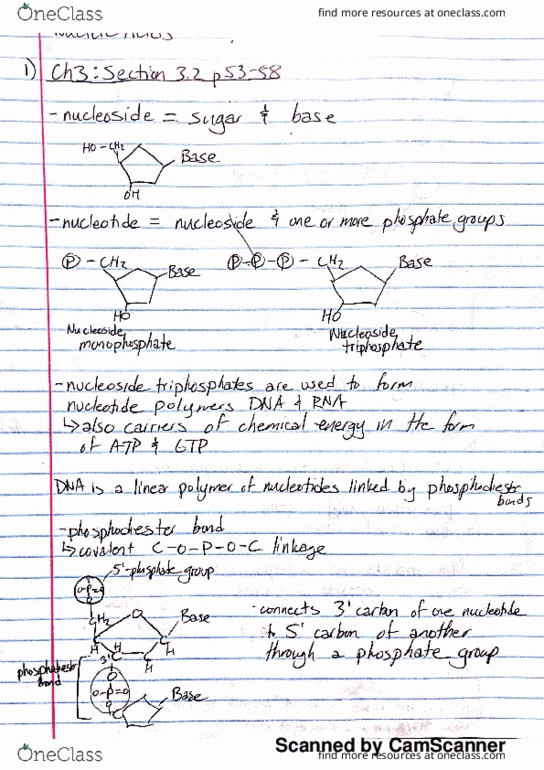 OneClass
find more resources at oneclass.com
Nucleic Acids
1) Ch3: Section 3.2 p53-58
-nucleoside = sugar & base
HO-CH2
Base
OH
-nucleotide = nucleoside & one or more phosphate groups
P-CH2
Base
P-P-P-CH2
Base
HO
HO
Nucleoside
monophosphate
Nucleoside
triphosphate
-nucleoside triphosphates are used to form
nucleotide polymers DNA & RNA
↳also carriers of chemical energy in the form
of ATP & GTP
DNA is a linear polymer of nucleotides linked by phosphodiestr
bonds
-phosphodiester bond
↳covalent C-O-P-O-C linkage
5'-phosphate group
O-P=O
CH2
O
Base
C
C
H
H
H
H
3'C
C
-connects 3' carbon of one nucleotide
to 5' carbon of another
through a phosphate group
phosphodiestr
bond
O
O-P=O
O
C
Base
Scanned by CamScanner
OneClass
find more resources at oneclass.com